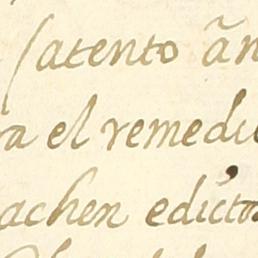 (atento ãn
ra el remedi
achen edicto